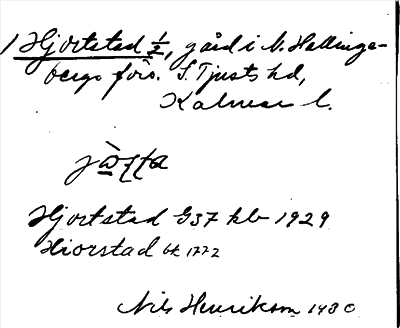 1 Hjortstad ½, gård i N. Hallinge-
bergs förs. S. Tjusts hd,
Kalmar l.
Hjortstad G37 kb 1929
Hiorstad 1772
Nils Henrikson 1930